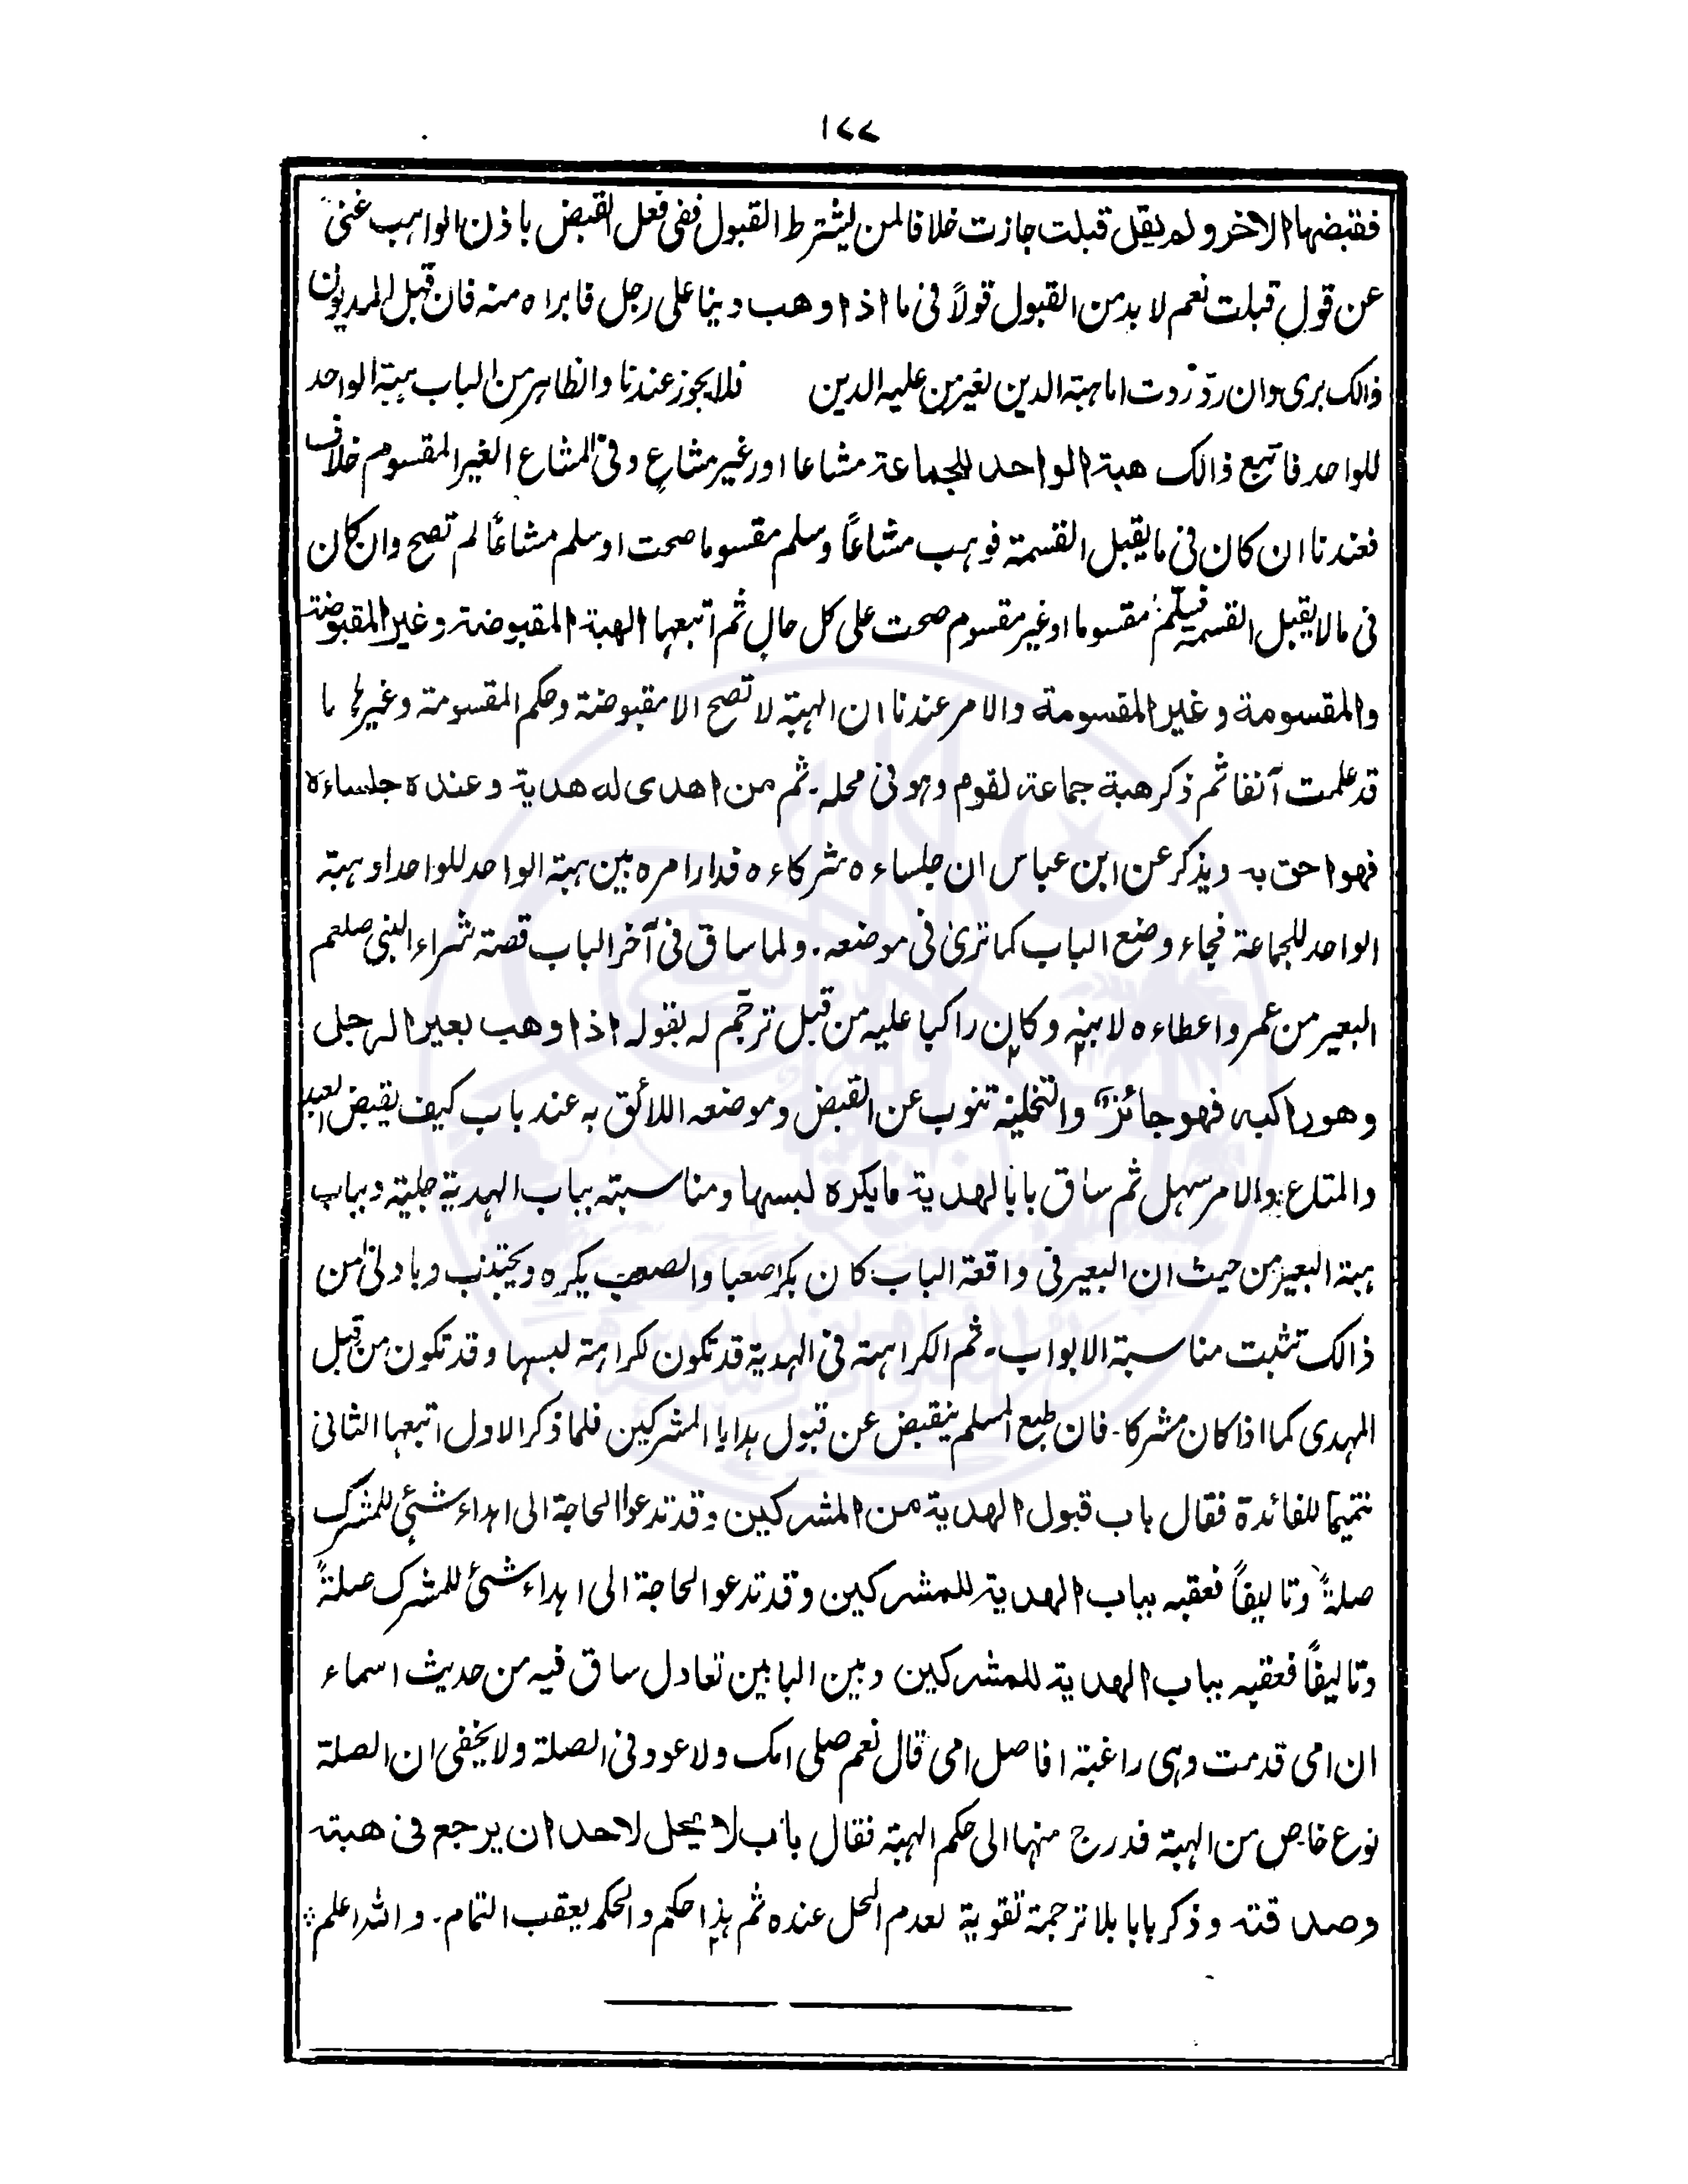 ۱۷۷
فقبضها الاخر ولم يقل قبلت جازت خلافا لمن يشترط القبول ففى فعل القبض باذن الواهب غنىً
عن قول قبلت نعم لا بد من القبول قولاً فى ما اذا وهب دينا على رجل فابراه منه فان قبل المديون
ذالك برى وان ردّ ردت اما هبة الدين لغير من عليه الدين فلا يجوز عندنا والظاهر من الباب هبة الواحد
للواحد فاتبع ذالك هبة الواحد للجماعة مشاعا اور غير مشاع وفى المشاع الغير المقسوم خلاف
فعندنا ان كان فى ما يقبل القسمة فوهب مشاعاً وسلم مقسوما صحت او سلم مشاعاً لم تصح وان كان
فى ما لا يقبل القسمة فيسلم مقسوما او غير مقسوم صحت على كل حال ثم اتبعها الهبة المقبوضة وغير المقبوضة
والمقسومة وغير المقسومة والامر عندنا ان الهبة لا تصح الا مقبوضة وحكم المقسومة وغيرها ما
قد علمت آنفا ثم ذكر هبة جماعة لقوم وهو فى محله۔ ثم من اهدى له هدية وعنده جلساءه
فهو احق به ويذكر عن ابن عباس ان جلساءه شركاءه فدار امره بين هبة الواحد للواحد او هبة
الواحد للجماعة فجاء وضع الباب كما ترىٰ فى موضعه۔ ولما ساق فى آخر الباب قصة شراء النبى صلعم
البعير من عمر واعطاءه لابنه وكان راكبا عليه من قبل ترجّم له بقوله اذا وهب بعيرا لرجل
وهو راكبه فهو جائز والتخلية تنوب عن القبض وموضعه اللائق به عند باب كيف يقبض العبد
والمتاع والامر سهل ثم ساق بابا لهدية ما يكره لبسها ومناسبته بباب الهدية جلية وبباب
هبة البعير من حيث ان البعير فى واقعة الباب كان بكرا صعبا والصعب يكره ويجتذب وبادنىٰ من
ذالك تثبت مناسبة الابواب۔ ثم الكراهة فى الهدية قد تكون لكراهة لبسها وقد تكون من قبل
المهدى كما اذا كان مشركا۔ فان طبع المسلم ينقبض عن قبول هدايا المشركين فلما ذكر الاول اتبعها الثانى
تتميما للفائدة فقال باب قبول الهدية من المشركين وقد تدعوا الحاجة الى اهداء شئى للمشرك
صلةً وتاليفاً فعقبه بباب الهدية للمشركين وقد تدعوا الحاجة الى اهداء شئى للمشرك صلةً
وتاليفاً فعقبه بباب الهدية للمشركين وبين البابين تعادل ساق فيه من حديث اسماء
ان امى قدمت وهى راغبة افاصل امى قال نعم صلى امك ولا عود فى الصلة ولا يخفى ان الصلة
نوع خاص من الهبة فدرج منها الى حكم الهبة فقال باب لا يحل لاحد ان يرجع فى هبته
وصدقته وذكر بابا بلا ترجمة تقوية لعدم الحل عنده ثم هذا حكم والحكم يعقب التمام۔ والله اعلم